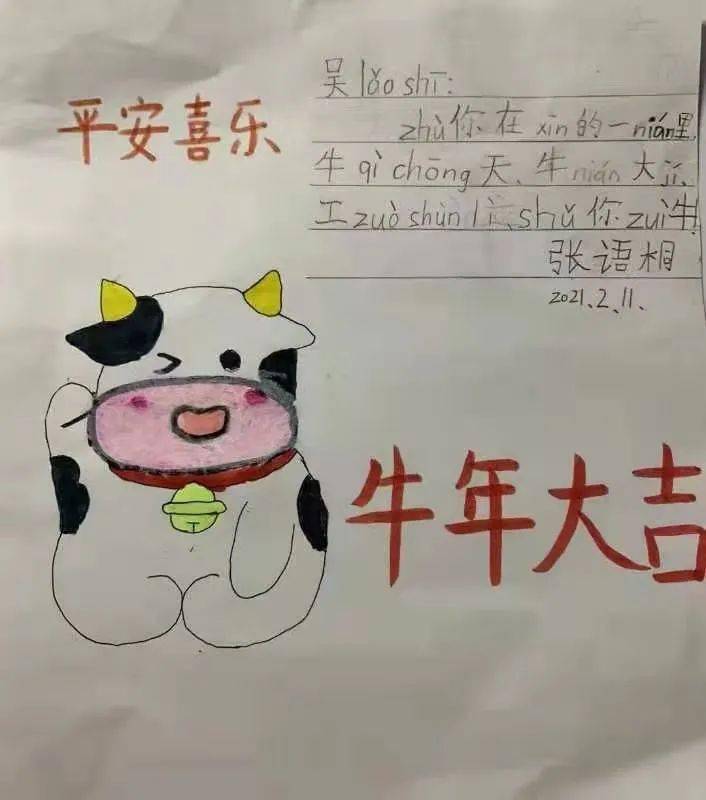 平安喜乐
吴lǎo shī:
zhù你在xīn的一nián里,
牛qì chōng天、牛nián大jí、
工zuò shùn lì、shǔ你zuì牛!
张语桐
2021.2.11.
牛年大吉